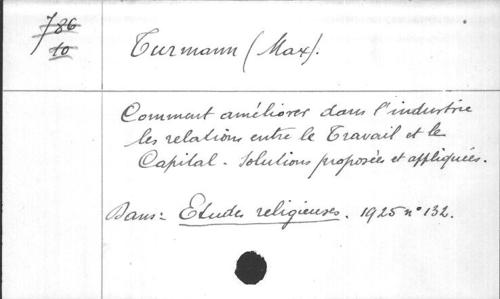 786
10
Turmann (Max).
Comment améliorer dans l'industrie
les relations entre le Travail et le
Capital - Solutions proposées et appliquées.
Dans: Etudes religieuses. 1925 n° 132.